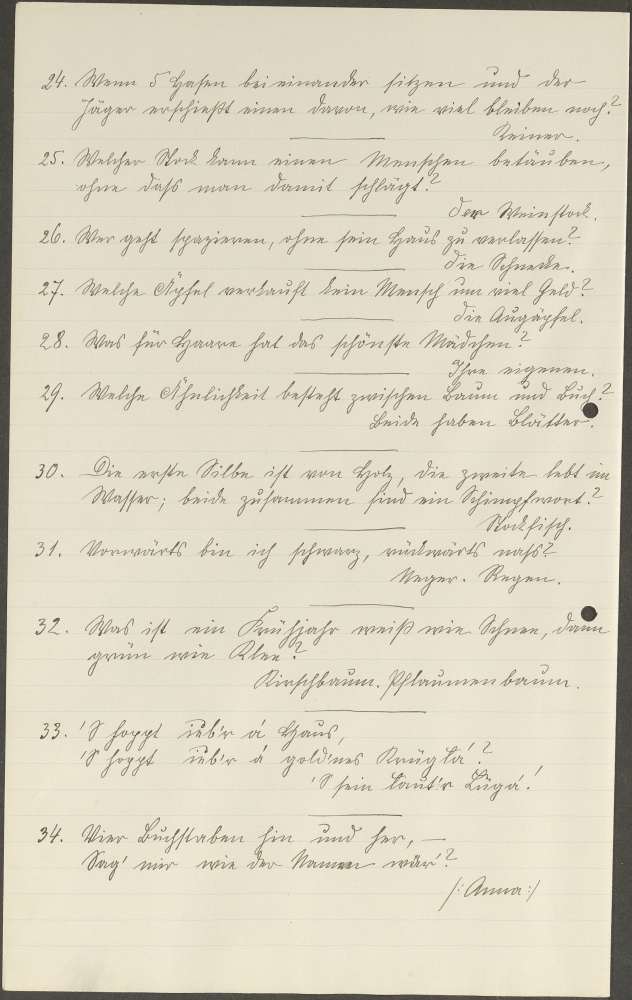 24. Wenn 5 Hasen beieinander sitzen und der
Jäger erschießt einen davon, wie viel bleiben noch?
Keiner.
25. Welcher Stock kann einen Menschen betäuben,
ohne dass man damit schlägt?
Der Weinstock.
26. Wer geht spazieren, ohne sein Haus zu verlassen?
Die Schnecke.
27. Welche Äpfel verkauft kein Mensch um viel Geld?
Die Augäpfel.
28. Was für Haare hat das schönste Mädchen?
Ihre eigenen.
29. Welche Ähnlichkeit besteht zwischen Baum und Buch?
Beide haben Blätter.
30. Die erste Silbe ist von Holz, die zweite lebt im
Wasser; beide zusammen sind ein Schimpfwort?
Stockfisch.
31. Vorwärts bin ich schwarz, rückwärts nass?
Neger. Regen.
32. Was ist ein Frühjahr weiß wie Schnee, dann
grün wie Klee?
Kirschbaum. Pflaumenbaum.
33. 'S hoppt üb'r á Haus,
'S hoppt üb'r á gold'nes Krügla'?
'S sein laut'r Lüga'!
34. Vier Buchstaben hin und her, —
Sag' mir wie der Namen wär'?
/: Anna :/